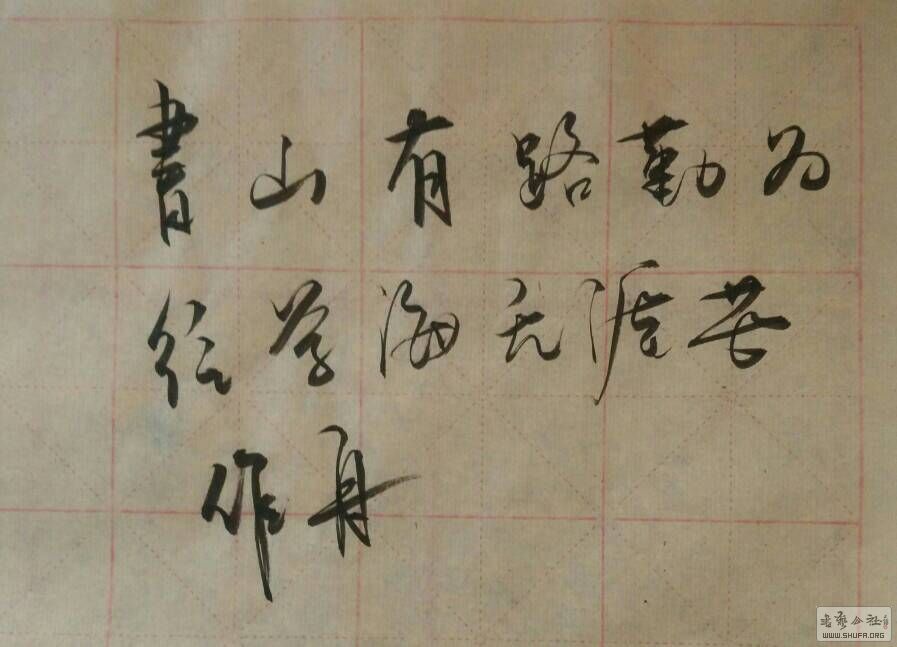 書山有路勤为
径学海无涯苦
作舟
WWW.SHUFA.ORG